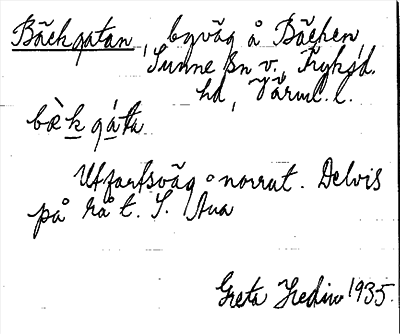 Bäckgatan, byväg å Bäcken,
Sunne sn v., Fryksd.
hd, Värml. l.
bæ̀k gáta
Utfartsväg norrut. Delvis
på rå t. S. Aua
Greta Hedin 1935.